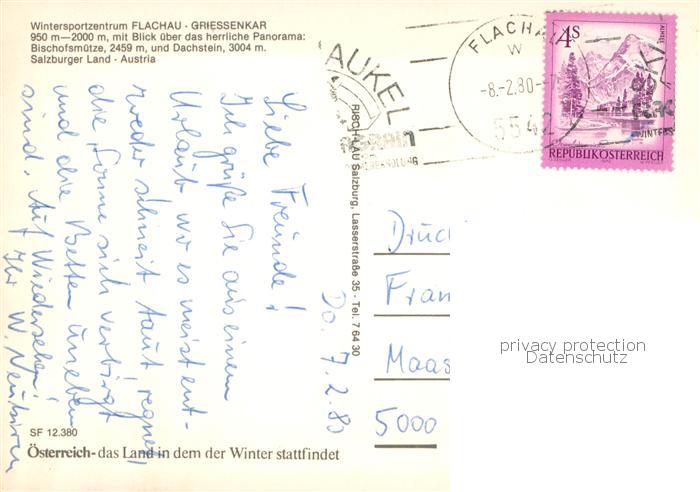 Wintersportzentrum FLACHAU - GRIESSENKAR
950 m—2000 m, mit Blick über das herrliche Panorama:
Bischofsmütze, 2459 m, und Dachstein, 3004 m.
Salzburger Land - Austria
AUKEL
FLACHAU
W
-8.-2.80-
5542
4S
REPUBLIK ÖSTERREICH
WINTERS
Liebe Freunde!
Ich grüße Sie aus einem
Urlaub, wo es meist ent-
weder schneit, taut, regnet,
die Sonne sich verbirgt
und die Betten uneben
sind. Auf Wiedersehen!
Ihr W.
Do. 7.2.80
RISCHLAU Salzburg, Lasserstraße 35 - Tel. 7 64 30
Druc
Fran
Maas
5000
privacy protection
Datenschutz
SF 12.380
Österreich - das Land in dem der Winter stattfindet